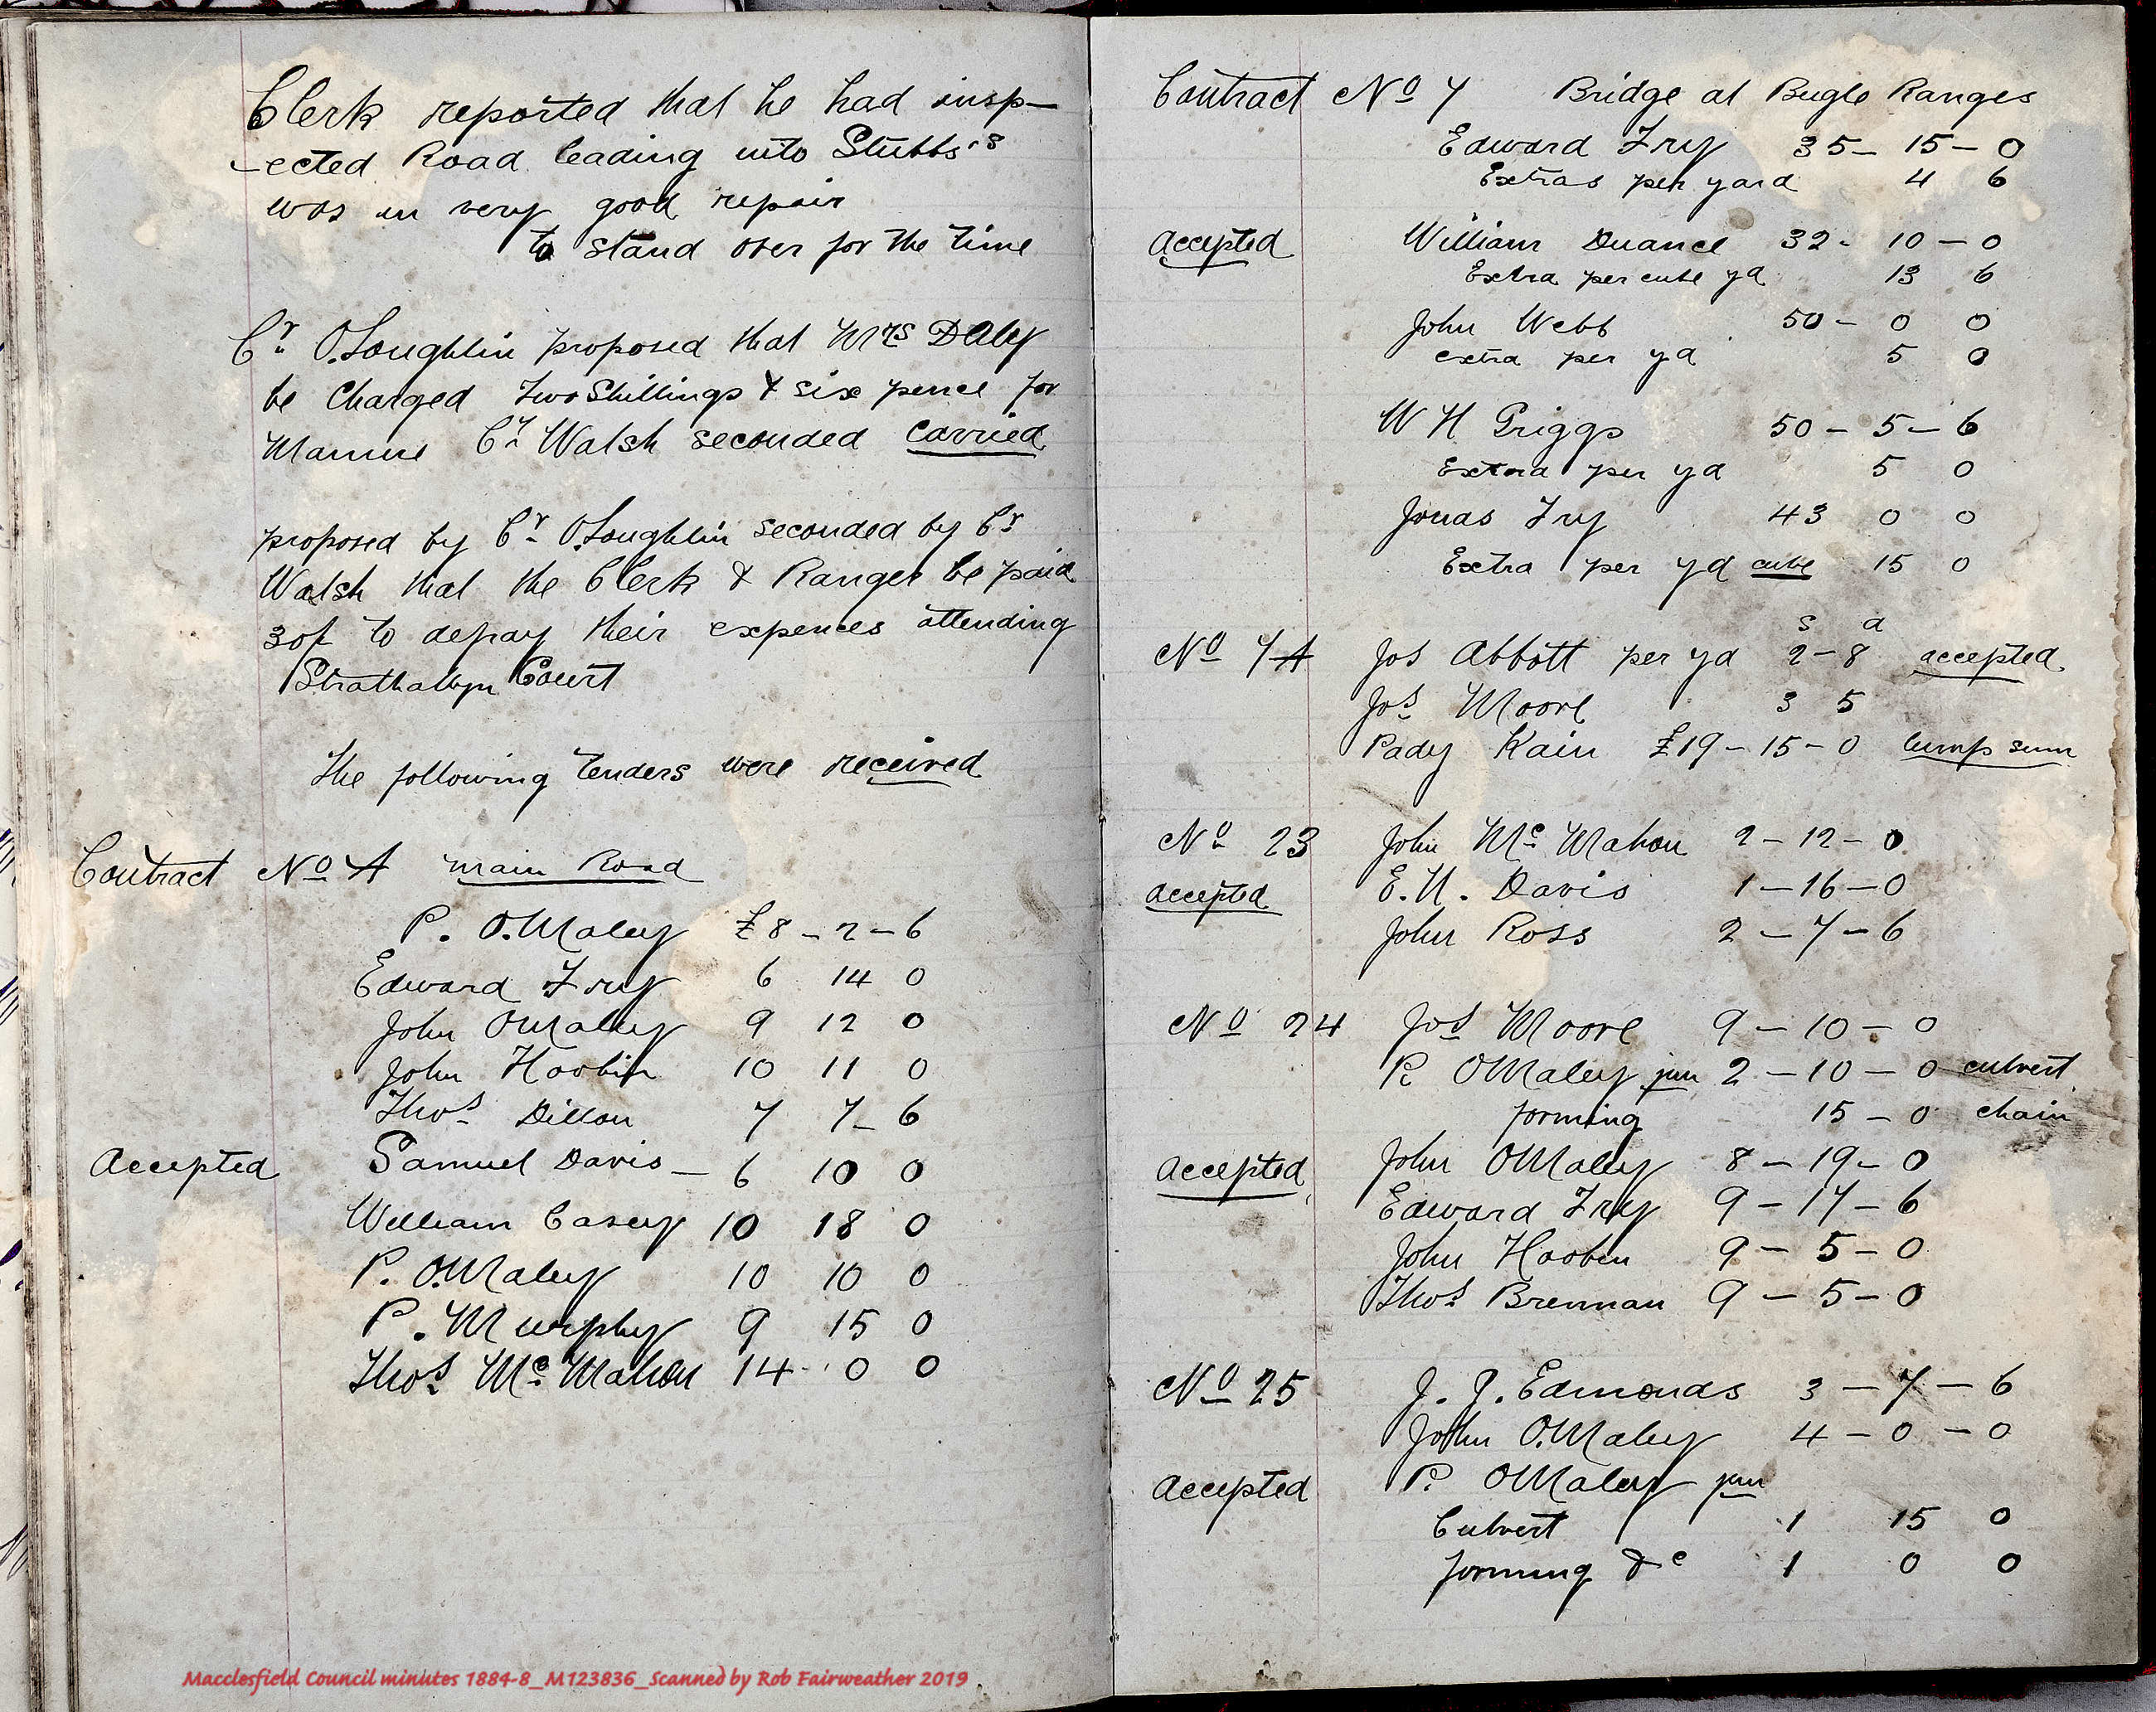 Clerk reported that he had insp-
-ected Road leading into Stubbs's
was in very good repair
to stand over for the time
Cr O.Loughlin proposed that Mrs Daley
be Charged two Shillings & six pence for
Cr Walsh seconded carried
proposed by Cr O.Loughlin seconded by Cr
Walsh that the Clerk & Ranger be paid
30/- to defray their expences attending
Strathalbyn Court
The following tenders were received
Contract No A main Road
P. O.Maley £8-2-6
Edward Fry 6 14 0
John OMaley 9 12 0
John Hoobin 10 11 0
Thos Dillon 7 7-6
Accepted Samuel Davis- 6 10 0
William Casey 10 18 0
P. O.Maley 10 10 0
P. Murphy 9 15 0
Thos Mc Mahon 14 0 0
Macclesfield Council minutes 1884-8_M123836_Scanned by Rob Fairweather 2019
Contract No 7 Bridge at Bugle Ranges
Edward Fry 35-15-0
Extras per yard 4 6
accepted William Duance 32-10-0
Extra per cube yd 13 6
John Webb 50-0 0
extra per yd 5 0
W H Griggs 50-5-6
Extra per yd 5 0
Jonas Fry 43 0 0
Extra per yd cube 15 0
s d
No 7A Jos Abbott per yd 2-8 accepted
Jos Moore 3 5
Pady Kain £19-15-0 lump sum
No 23 John Mc Mahon 2-12-0
accepted E.H. Davis 1-16-0
John Ross 2-7-6
No 24 Jos Moore 9-10-0
P. OMaley jun 2-10-0 culvert
forming 15-0 chain
accepted John OMaley 8-19-0
Edward Fry 9-17-6
John Hoobin 9-5-0
Thos Brennan 9-5-0
No 25 J. J. Edmonds 3-7-6
John O.Maley 4-0-0
Accepted P. OMaley jun
Culvert 1 15 0
forming &c 1 0 0